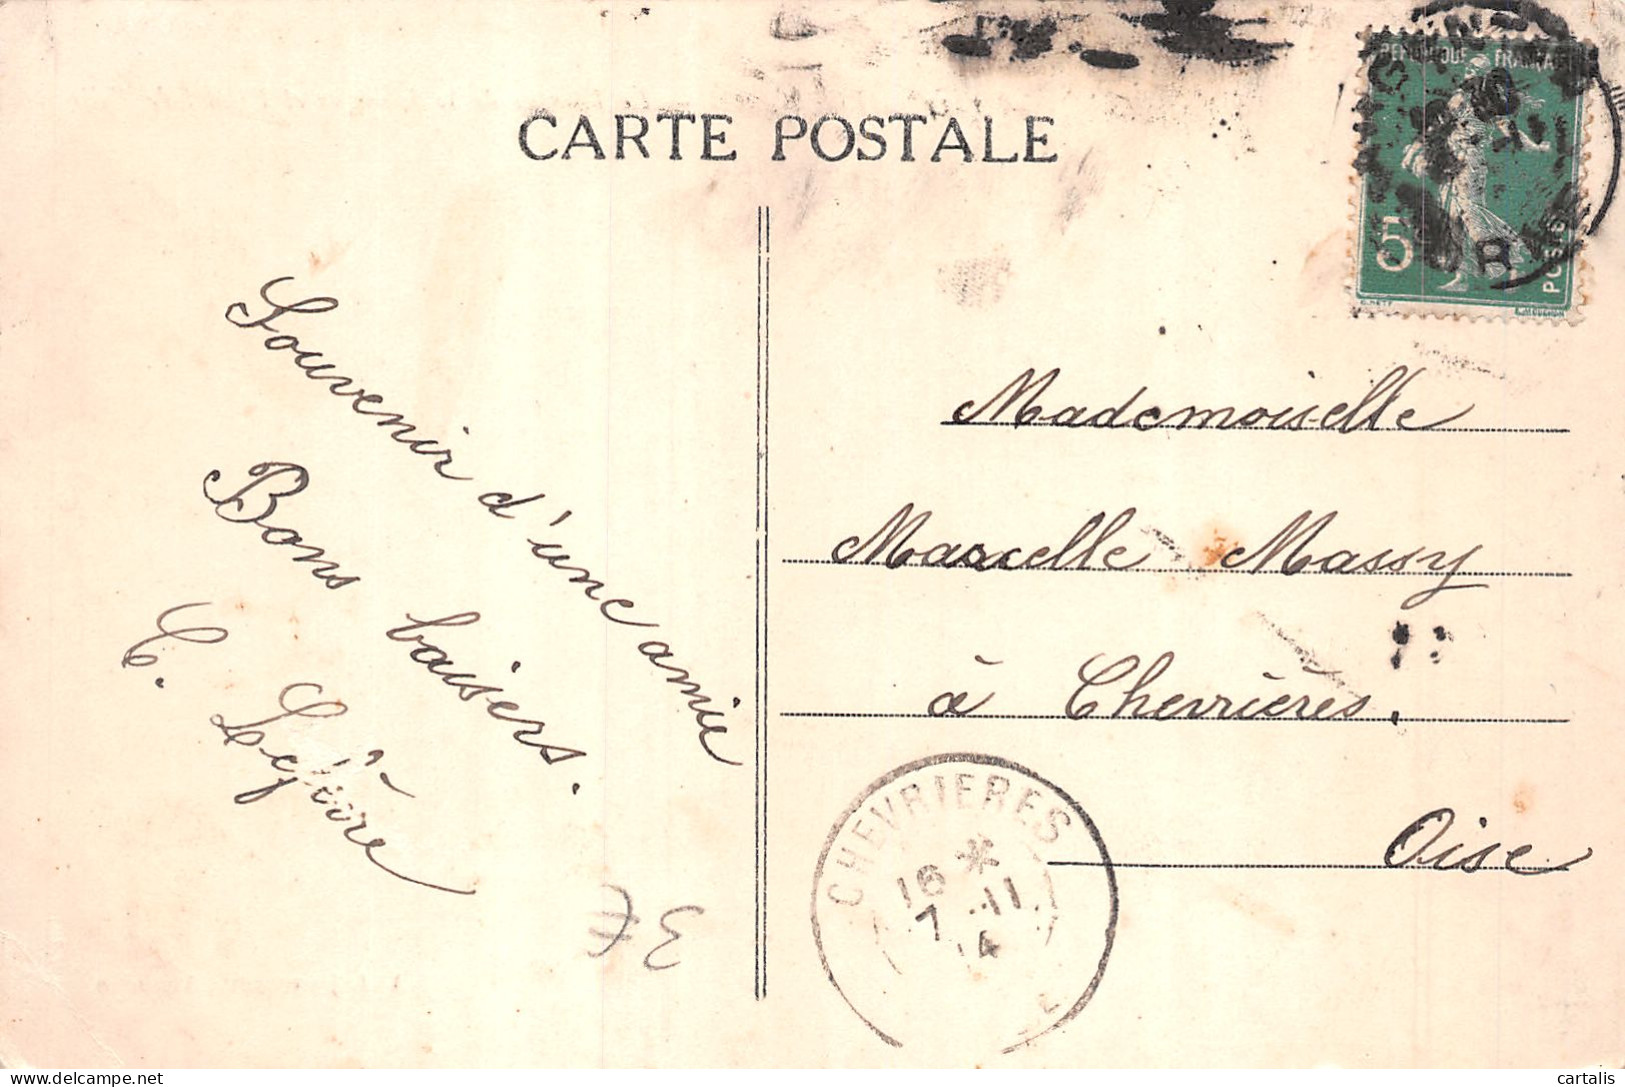 CARTE POSTALE
REPUBLIQUE FRANÇAISE
5
POSTES
Souvenir d'une amie
Bons baisers.
C. Lefèvre
Mademoiselle
Marcelle Massy
à Chevrières.
Oise
CHEVRIERES
16 *
7 11
14
3 €
cartalis